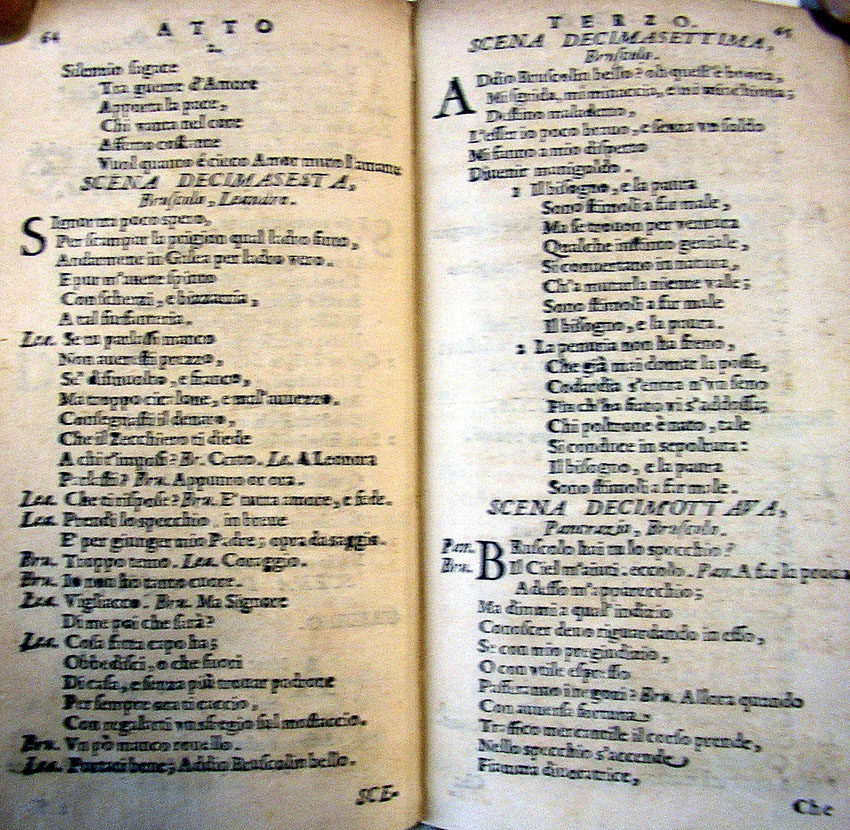 64 ATTO
2.
Silentio sugate
Tra guerre d'Amore
Apporta la pace,
Chi vanta nel core
Affetto costante
Vuol quanto é cieco Amor muto l'amante
SCENA DECIMASESTA,
Bruscolo, Leandro.
SIgnor mi poco spero,
Per scampar la prigion qual ladro finto,
Andarmene in Galea per ladro vero.
E pur m'avete spinto
Con scherzi, e bizzaria,
A tal furfanteria.
Lea. Se tu parlassi manco
Non averesti prezzo,
Se' disinvolto, e franco,
Ma troppo cicalone, e mal'avvezzo.
Consegnasti il denaro,
Che il Zecchiero ti diede
A chi t'imposi? Br. Certo. Le. A Leonora
Parlasti? Bru. Appunto or ora.
Lea. Che ti rispose? Bru. E' tutta amore, e fede.
Lea. Prendi lo specchio. in breve
E' per giunger mio Padre; opra da saggio.
Bru. Troppo temo. Lea. Coraggio.
Bru. Io non ho tanto cuore.
Lea. Vigliacco. Bru. Ma Signore
Di me poi che sarà?
Lea. Cosa fatta capo ha;
Obbedisci, o che fuori
Di casa, e senza più trovar padrone
Per sempre ora ti caccio,
Con regalarti un sfregio sul mostaccio.
Bru. Un pò manco rovello.
Lea. Portati bene; Addio Bruscolin bello.
SCE-
TERZO. 65
SCENA DECIMASETTIMA,
Bruscolo.
ADdio Bruscolin bello? oh quest'è buona,
Mi sgrida, mi minaccia, e mi minchiona;
Destino maladetto,
L'esser io poco bravo, e senza un soldo
Mi fanno a mio dispetto
Divenir manigoldo.
1 Il bisogno, e la paura
Sono stimoli a far male,
Ma se trovon per ventura
Qualche instinto geniale,
Si convertano in natura,
Ch'a mutarla niente vale;
Sono stimoli a far male
Il bisogno, e la paura.
2 La penuria non ha freno,
Che già mai domar la possa,
Codardia s'entra n'un seno
Fin ch'ha fiato vi s'addossa;
Chi poltrone è nato, tale
Si conduce in sepoltura:
Il bisogno, e la paura
Sono stimoli a far male.
SCENA DECIMOTTAVA,
Pancrazio, Bruscolo.
Pan. BRuscolo hai tu lo specchio?
Bru. Il Ciel m'aiuti. eccolo. Pan. A far la prova
Adesso m'apparecchio;
Ma dimmi a qual'indizio
Conoscer devo riguardando in esso,
Se con mio pregiudizio,
O con utile espresso
Passeranno i negozi? Bru. Allora quando
Con avversa fortuna,
Traffico mercantile il corso prende,
Nello specchio s'accende
Fiamma divoratrice,
Che